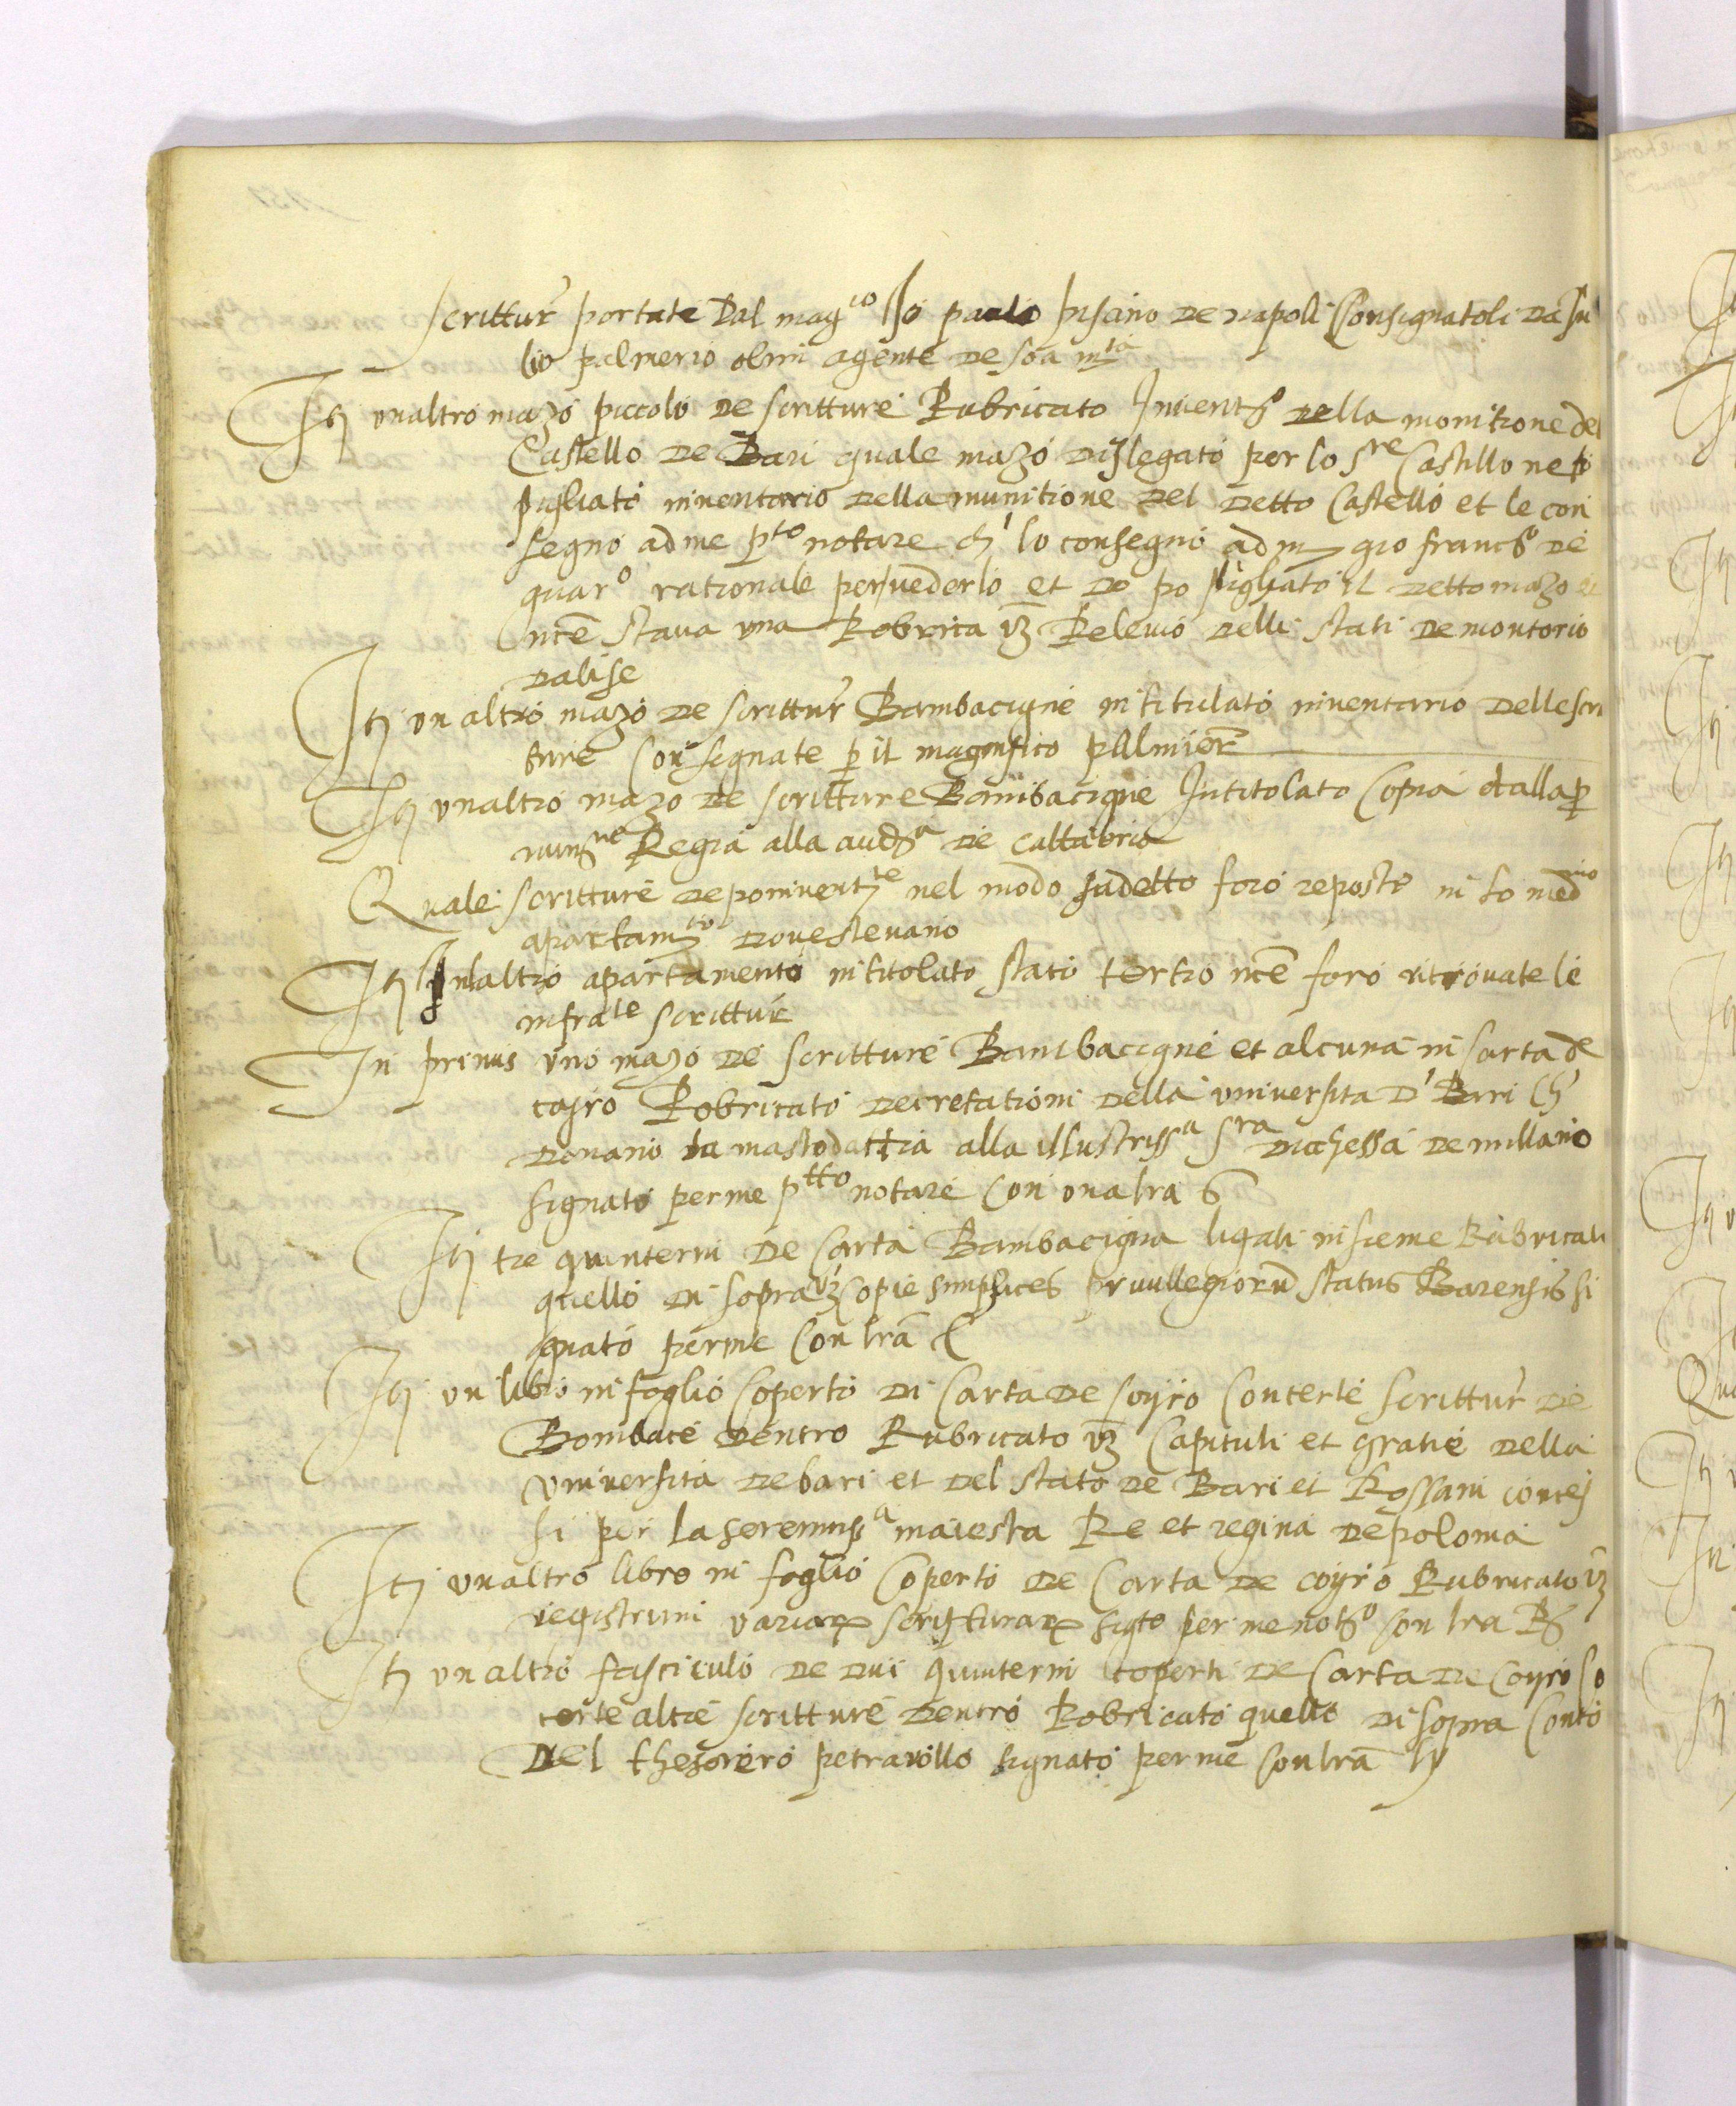 scrittur portate Dal mag.co Jo paulo pisano de napoli Consignatoli da Ju
lio palmerio olim agente de soa m.ta
Itẽ unaltro mazo piccolo de scritture Rubricato Invent.o della monitione del
Castello de Bari quale mazo dislegato per lo s.re Castillone
pigliato inventario della munitione del detto Castello et le con
segno ad me p.to notare ch' lo consegno ad gio franc.o de
quar.o rationale per vederlo et do po pigliato il detto mazo et
ince stava una Robrica vz Relevio delli stati de montorio
dalise
Itẽ un altro mazo de scrittur Bambacigne intitulato inventario delle scri
ture Consegnate p il magnifico pallmier
Itẽ unaltro mazo de scritture Bambacigne Intitolato Copia dalla p
Regia alla aud.a de callabria
Quale scritture nel modo sudetto foro reposte in lo med.mo
apartam.to dove stevano
Itẽ Inlaltro apartamento intitolato stato tertio ince foro ritrovate le
infra.te scrittur
In primis uno mazo de scritture Bambacigne et alcuna in carta de
coiro Robricato decretationi della universita d' Bari ch'
donano la mastodattia alla illustriss.a s.ra duchessa de millano
signato per me p.tto notare con una lra G
Itẽ tre quinterni de Carta Bambacigna ligati insieme Rubricati
quello di sopra vz copie simplices privillegiorũ status Barensis si
gnato per me Con lrã
Itẽ un libro in foglio Coperto di Carta de Coyro Con certe scrittur de
Bombace dentro Rubricato vz Capituli et gratie della
universita de bari et del stato de Bari et Rossani conces
si per la sereniss.a maiesta Re et regina de polonia
Itẽ unaltro libro in foglio Coperto de Carta de coyro Rubricato vz
registrum variar scripturar sig.to per me not.o con lra
Itẽ un altro fasciculo de dui quinterni coperti de Carta de Coyro co
certe altre scritture dentro Robricato quello di sopra Conto
del thesorero petrarollo signato per me con lrã